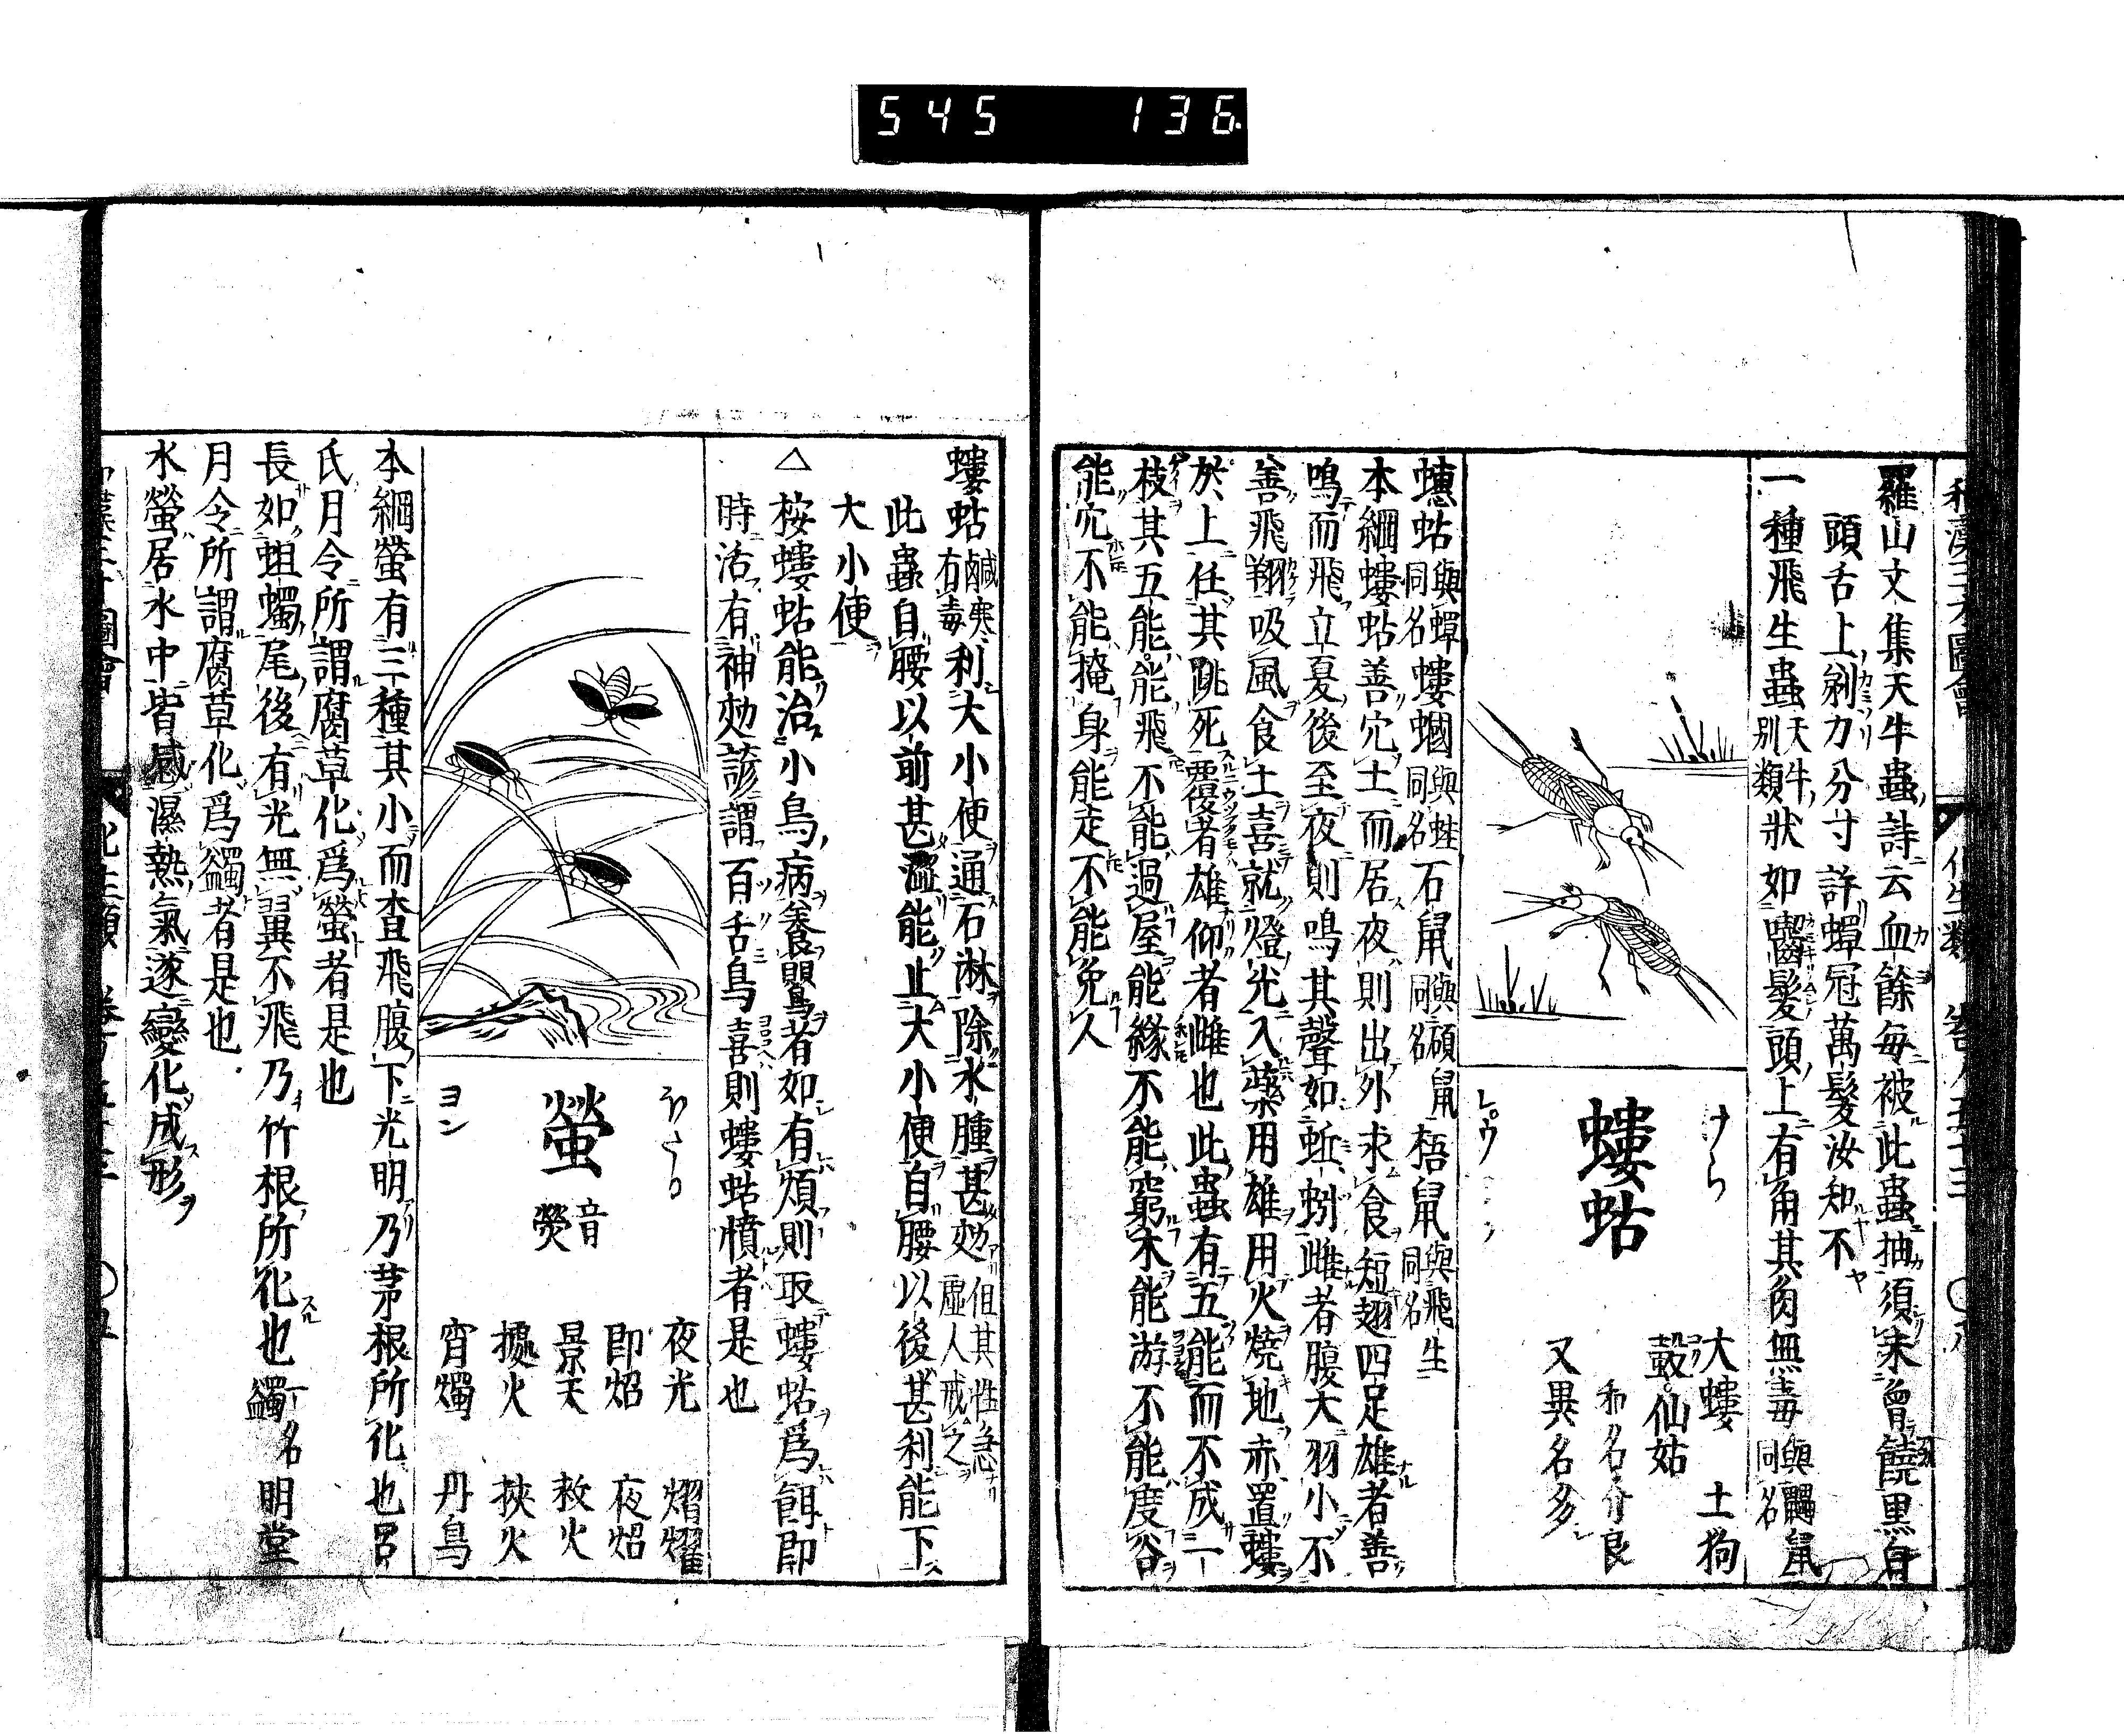 545 136
羅山文集天牛蟲詩云血餘毎被此蟲抽須未曾饒黒白
頭舌上剃刀分寸許蟫冠萬髪汝知不
一種飛生蟲天牛別類狀如囓髪頭上有角其肉無毒與鼺鼠同名
螻蛄
けら
大螻 土狗
蟪蛄與蟬同名螻蟈與蛙同名石鼠與碩鼠同名梧鼠與飛生同名
仙姑
和名介良
又異名多
本綱螻蛄善穴土而居夜則出外求食短翅四足雄者善
鳴而飛立夏後至夜則鳴其聲如蚯蚓雌者腹大羽小不
善飛翔吸風食土喜就燈光入藥用雄用火燒地赤置螻
於上任其跳死覆者雄仰者雌也此蟲有五能而不成一
枝其五能能飛不能過屋能緣不能窮木能游不能度谷
能穴不能掩身能走不能免人
螻蛄鹹寒有毒利大小便通石淋除水腫甚効但其性急虛人戒之
此蟲自腰以前甚澀能止大小便自腰以後甚利能下
大小便
△按螻蛄能治小鳥病養鸎者如有煩則取螻蛄爲餌即
時活有神効諺謂百舌鳥喜則螻蛄憤者是也
螢
音熒
ヨン
夜光 熠燿
即炤 夜炤
景天 救火
據火 挾火
宵燭 丹鳥
本綱螢有三種其小而宵飛腹下光明乃茅根所化也呂
氏月令所謂腐草化爲螢者是也
長如蛆蠋尾後有光無翼不飛乃竹根所化也蠲一名明堂
月令所謂腐草化爲蠲者是也
水螢居水中皆感濕熱氣遂變化成形